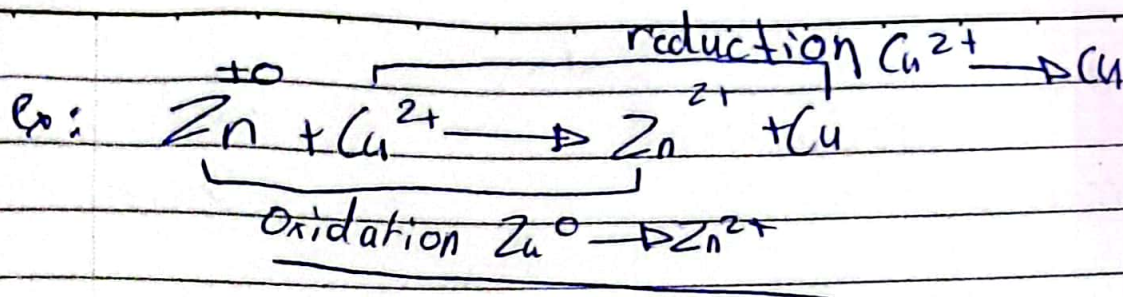 reduction Cu²⁺ → Cu
±0
Ex: Zn + Cu²⁺ → Zn²⁺ + Cu
Oxidation Zn⁰ → Zn²⁺